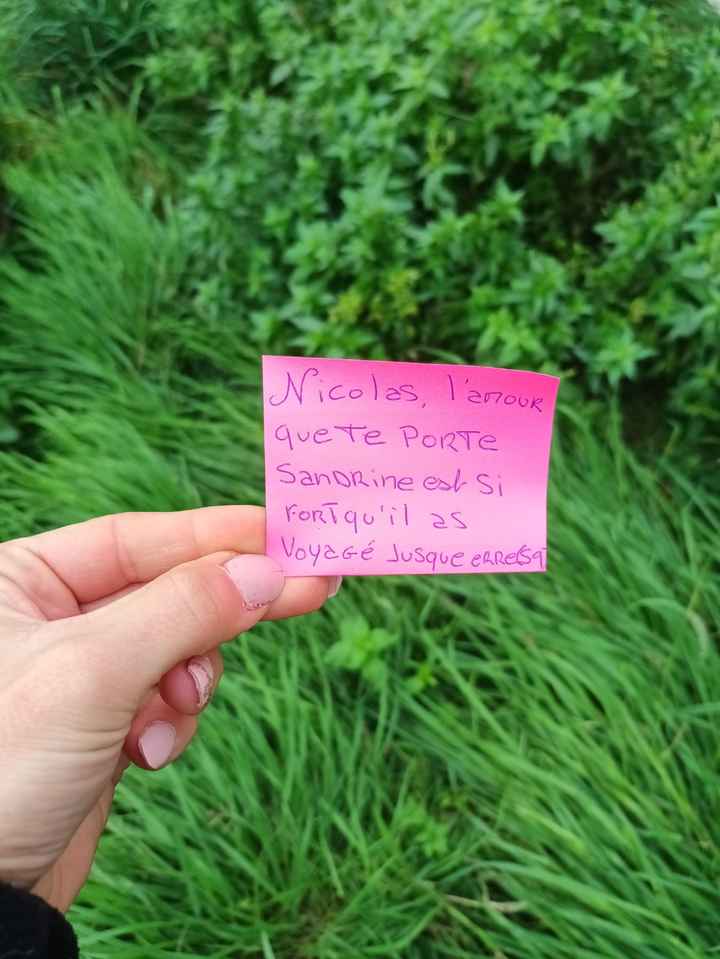 Nicolas, l'amour
que Te PORTE
SANDRINE est Si
FORT qu'il as
VOYAGÉ JUSQUE